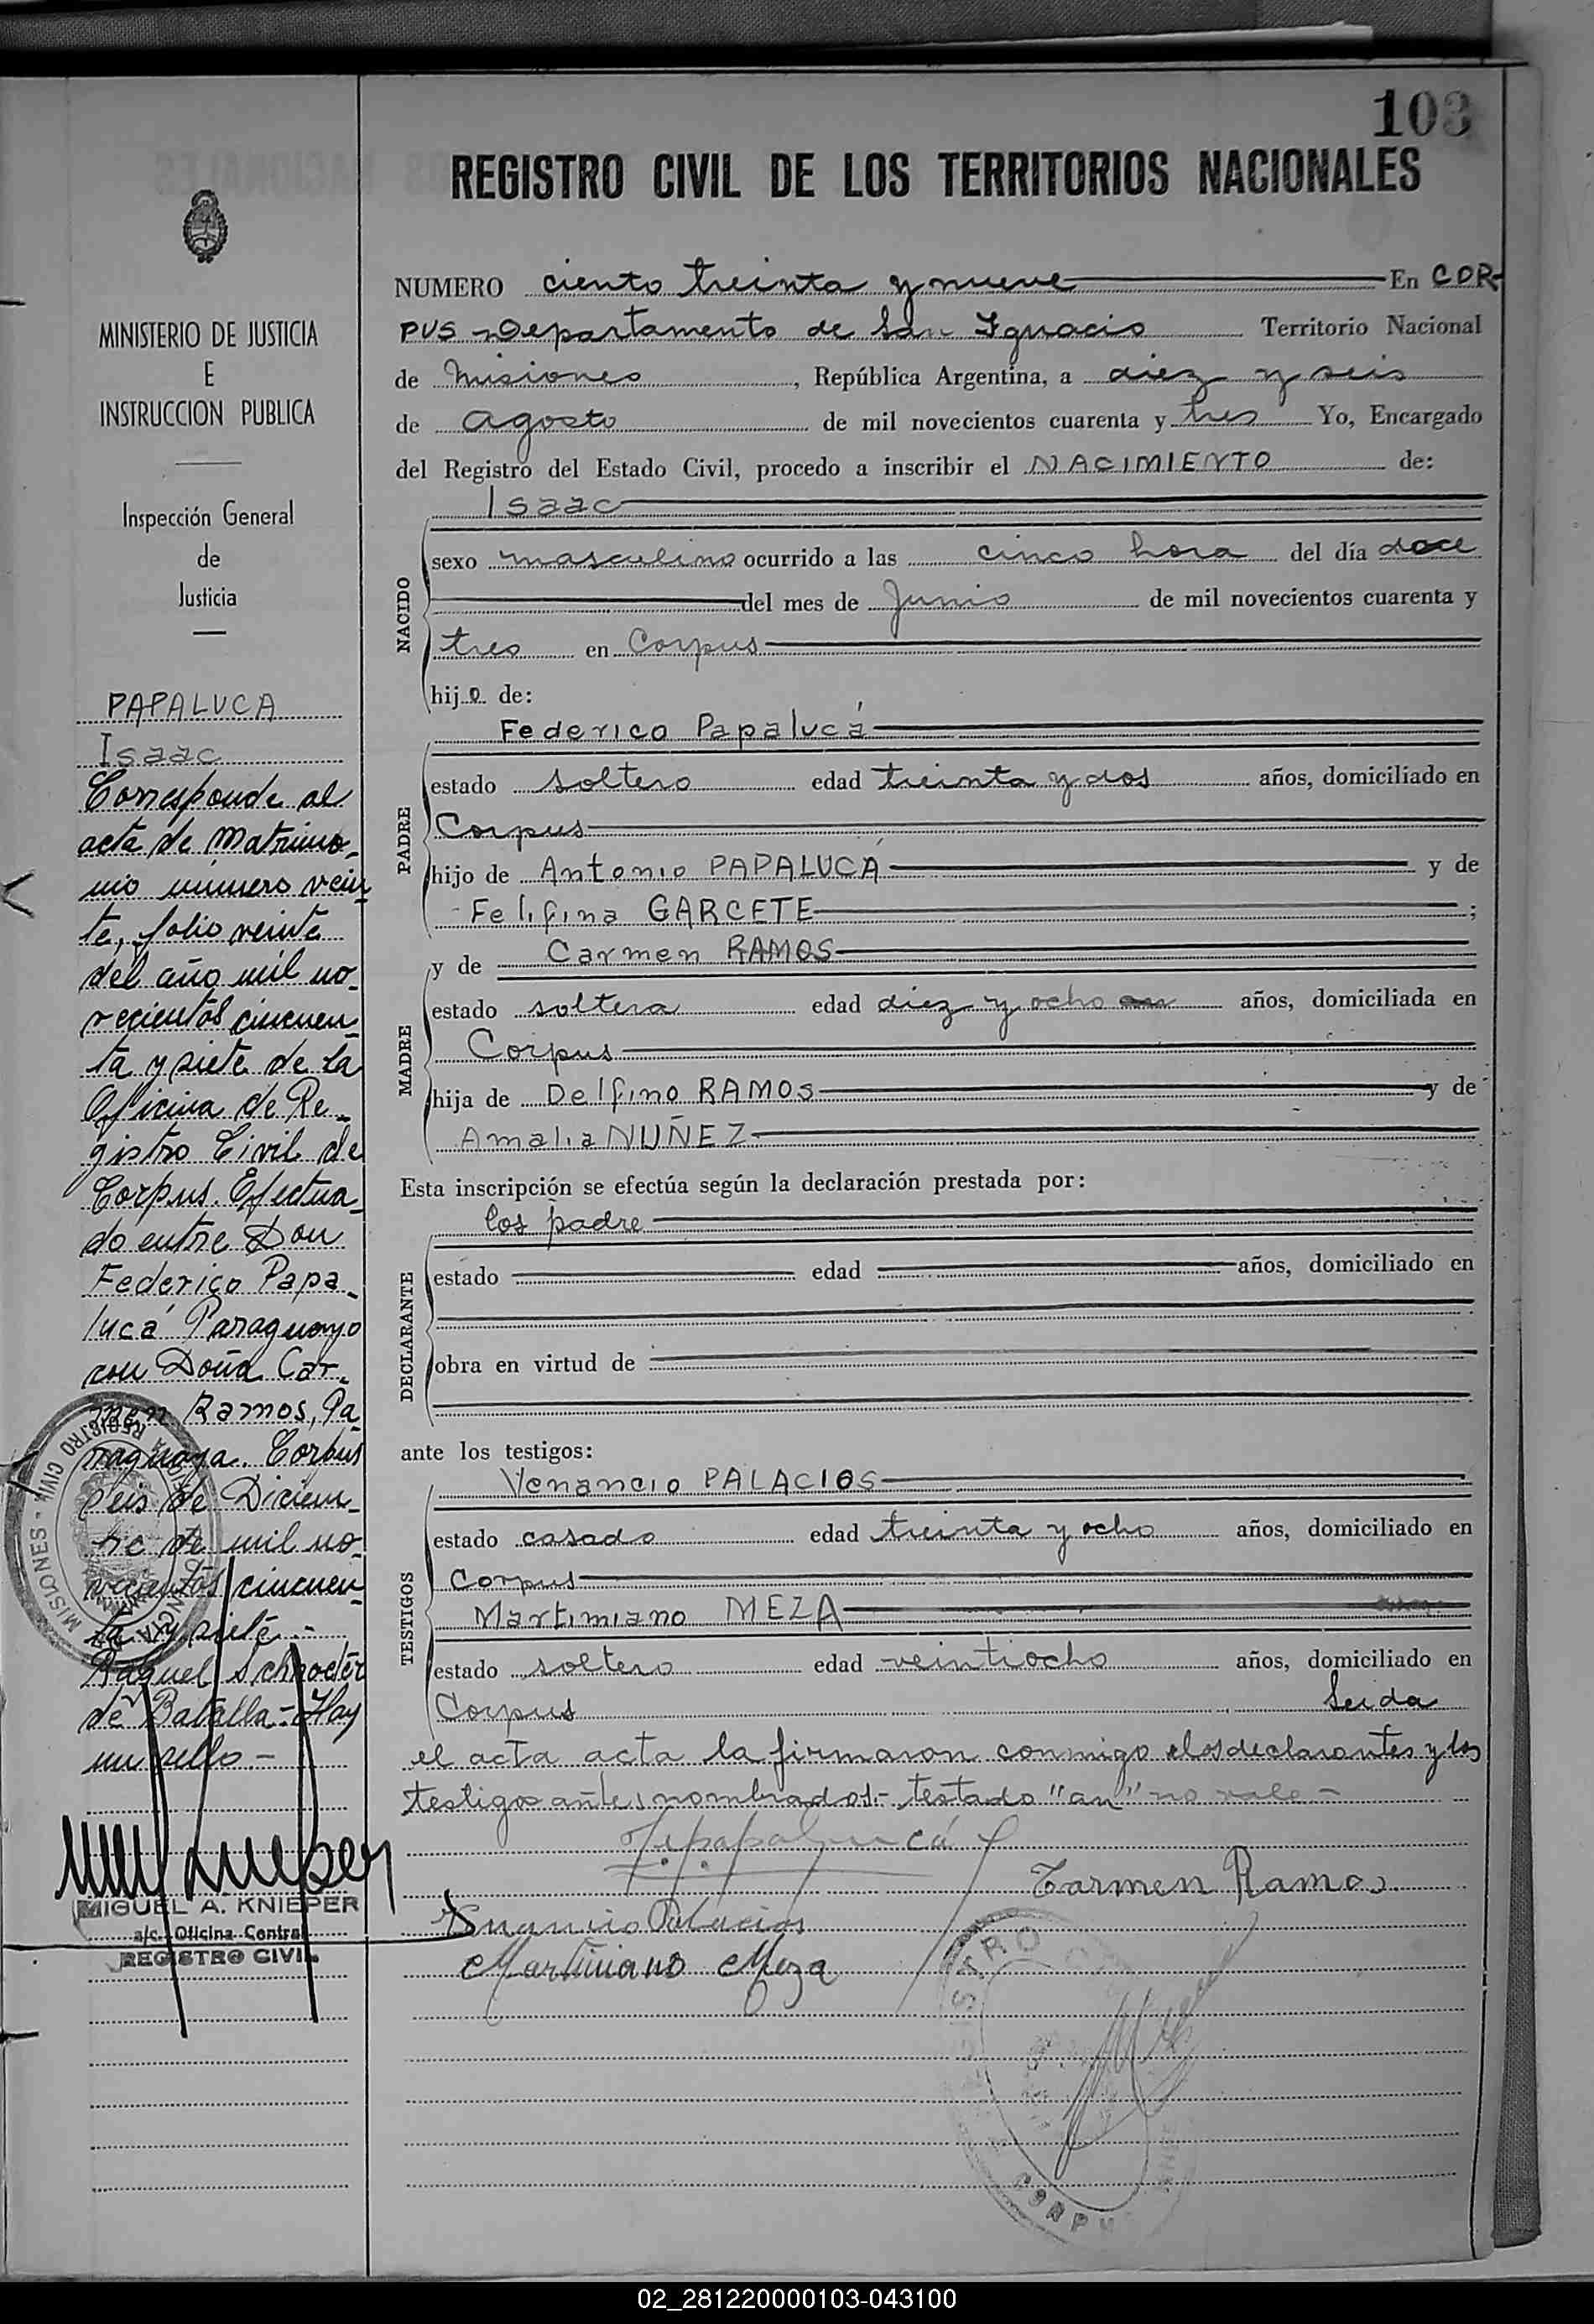 103
REGISTRO CIVIL DE LOS TERRITORIOS NACIONALES
NUMERO ciento treinta y nueve En COR-
PUS Departamento de San Ignacio Territorio Nacional
de Misiones, República Argentina, a diez y seis
de agosto de mil novecientos cuarenta y tres Yo, Encargado
del Registro del Estado Civil, procedo a inscribir el NACIMIENTO de:
Isaac
NACIDO
sexo masculino ocurrido a las cinco hora del día doce
del mes de Junio de mil novecientos cuarenta y
tres en Corpus
hijo de:
Federico Papalucá
PADRE
estado soltero edad treinta y dos años, domiciliado en
Corpus
hijo de Antonio PAPALUCÁ y de
Felifina GARCETE;
y de Carmen RAMOS
MADRE
estado soltera edad diez y ocho an años, domiciliada en
Corpus
hija de Delfino RAMOS y de
Amalia NUÑEZ
Esta inscripción se efectúa según la declaración prestada por:
los padre
DECLARANTE
estado edad años, domiciliado en
obra en virtud de
ante los testigos:
Venancio PALACIOS
TESTIGOS
estado casado edad treinta y ocho años, domiciliado en
Corpus
Martimiano MEZA
estado soltero edad veintiocho años, domiciliado en
Corpus Leida
el acta acta la firmaron conmigo los declarantes y los
testigos antes nombrados.- testado "an" no vale -
Carmen Ramos
Palacios
Martimiano Meza
REGISTRO
CORPUS
MINISTERIO DE JUSTICIA
E
INSTRUCCION PUBLICA
Inspección General
de
Justicia
PAPALUCA
Isaac
Corresponde al
acta de Matrimo-
nio número vein-
te, folio veinte
del año mil no-
vecientos cincuen-
ta y siete de la
Oficina de Re-
gistro Civil de
Corpus. Efectua-
do entre Don
Federico Papa-
lucá Paraguayo
con Doña Car-
men Ramos, Pa-
raguaya. Corpus
seis de Diciem-
bre de mil no-
vecientos cincuen-
ta y siete.-
Raquel Schrodër
de Batalla.- Hay
un sello.-
MISIONES - REGISTRO CIVIL
MIGUEL A. KNIEPER
a/c. Oficina Central
REGISTRO CIVIL
02_281220000103-043100